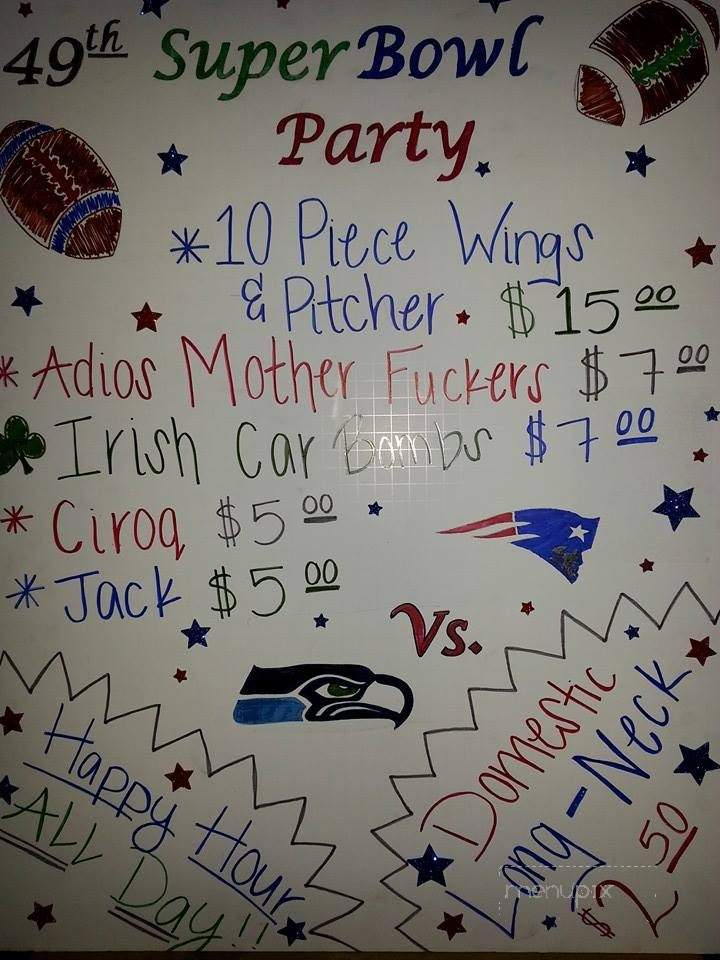 49th Super Bowl
Party
*10 Piece Wings
& Pitcher $15 00
* Adios Mother Fuckers $7 00
Irish Car Bombs $7 00
* Ciroq $5 00
* Jack $5 00
Vs.
Happy Hour
ALL Day!!
Domestic
Long-Neck
$2 50
menupix